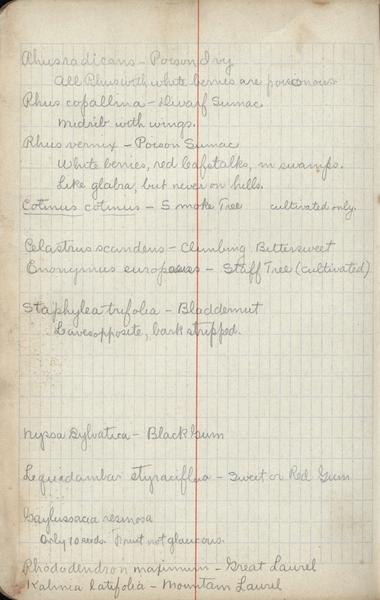 Rhus radicans - Poison Ivy
All Rhus with white berries are poisonous
Rhus copallina - Dwarf Sumac
Midrib with wings.
Rhus vernix - Poison Sumac
White berries, red leafstalks, in swamps.
Like glabra, but never on hills.
Cotinus cotinus - Smoke Tree cultivated only.
Celastrus scandens - Climbing Bittersweet
Euonymus europaeus - Staff Tree (cultivated)
Staphylea trifolia - Bladdernut
Leaves opposite, bark stripped.
Nyssa Sylvatica - Black Gum
Liquidambar styraciflua - Sweet or Red Gum
Gaylussacia resinosa
Only 10 seeds. Fruit not glaucous.
Rhododendron maximum - Great Laurel
Kalmia latifolia - Mountain Laurel